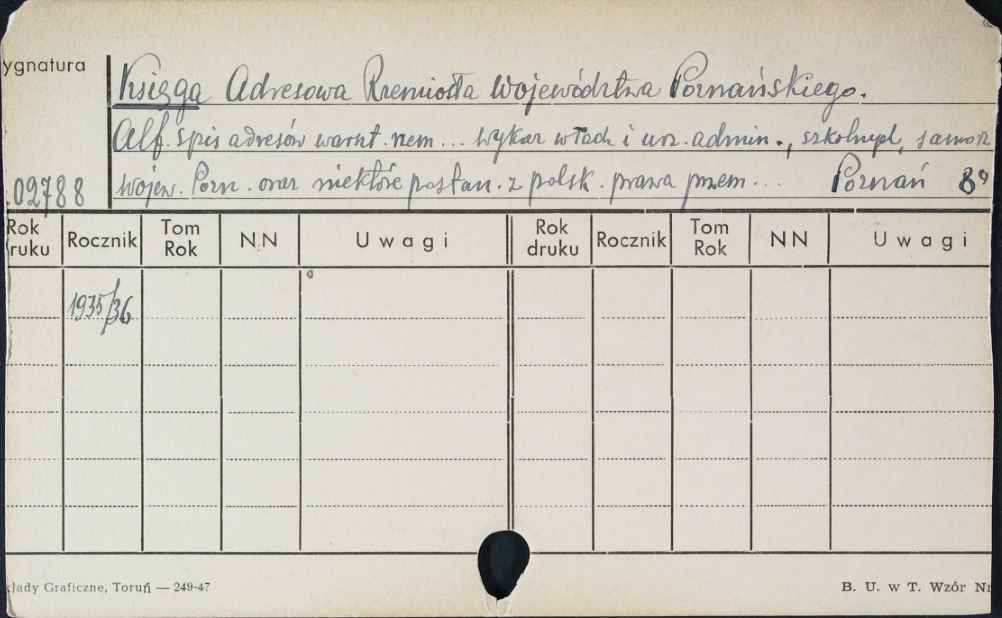 ygnatura
Księga Adresowa Rzemiosła Województwa Poznańskiego.
Alf. spis adresów warszt. rzem... wykaz władz i urz. admin., szkolnych, samorz
.02788 wojew. Pozn. oraz niektóre postan. z polsk. prawa przem... Poznań 8°
Rok ruku Rocznik Tom Rok NN Uwagi Rok druku Rocznik Tom Rok NN Uwagi
1935/36
kłady Graficzne, Toruń — 249-47 B. U. w T. Wzór Nr